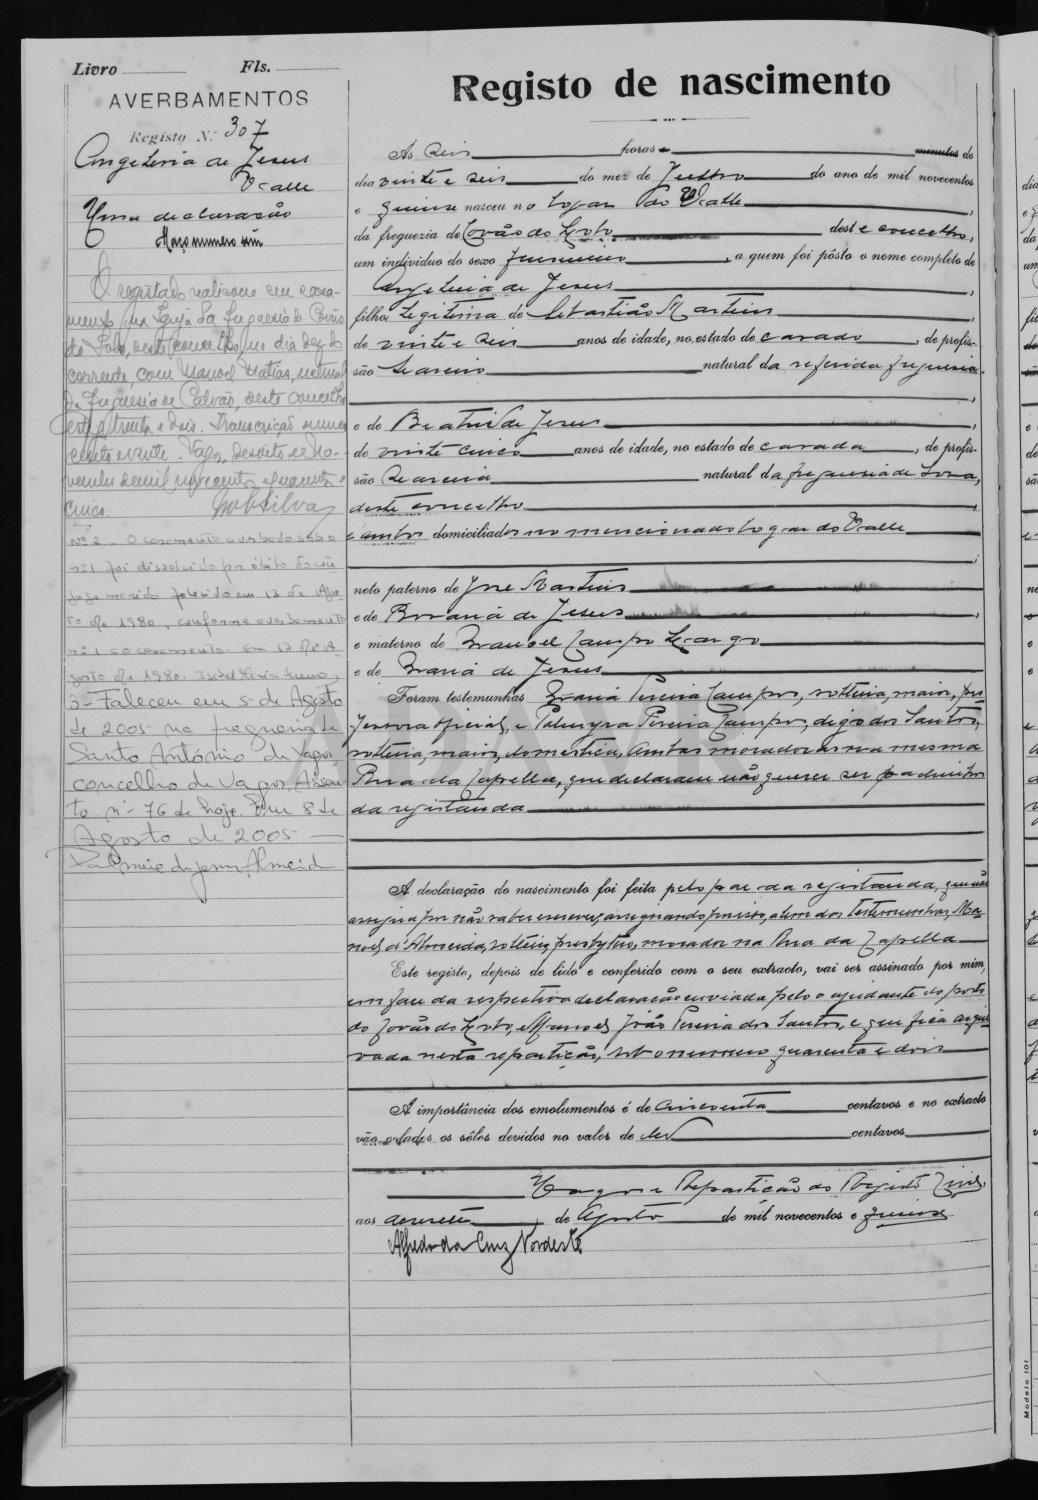 Livro Fls.
AVERBAMENTOS
Registo N.º 307
Angelina de Jesus
Valle
Uma declaração
Maço numero um
O registado realisou seu casa-
mento na Igreja da freguesia de Covão
do Lobo, deste concelho, no dia dez do
corrente, com Manoel Matias, natural
da freguesia de Calvão, deste concelho
trinta e dois. Transcrição numero
cento e vinte. Vagos, dezoito de No-
vembro de mil novecentos quarenta e
cinco.
Nº 2 - O casamento averbado sob o
nº 1 foi dissolvido por óbito do côn-
juge marido falecido em 12 de Agos-
to de 1980, conforme averbamento
nº 1 ao casamento. Em 13 de A-
gosto de 1980.
3 - Faleceu em 5 de Agosto
de 2005 na freguesia de
Santo António de Vagos,
concelho de Vagos, Assen-
to nº 76 de hoje. Em 8 de
Agosto de 2005
Registo de nascimento
Ás seis horas e minutos do
dia vinte e seis do mez de Julho do ano de mil novecentos
e quinze nasceu no logar do Valle,
da freguezia de Covão do Lobo deste concelho,
um individuo do sexo feminino, a quem foi pôsto o nome completo de
Angelina de Jesus,
filha legitima de Sebastião Martins,
de vinte e seis anos de idade, no estado de casado, de profis-
são Seareiro natural da referida freguesia,
e de Beatriz de Jesus,
de vinte cinco anos de idade, no estado de casada, de profis-
são Seareira natural da freguesia de Soza,
deste concelho
e ambos domiciliados no mencionado logar do Valle
;
neto paterno de José Martins
e de Rosaria de Jesus,
e materno de Manoel Campos Largo
e de Maria de Jesus
Foram testemunhas Maria Pereira Campos, solteira, maior, pro-
fessora oficial, e Palmyra Pereira Campos, digo dos Santos,
solteira, maior, domestica, ambas moradoras na mesma
Rua da Capella, que declararam não querer ser padrinhos
da registanda
A declaração do nascimento foi feita pelo pae da registanda, que não
assigna por não saber escrever, assignando por isso, alem das testemunhas, Ma-
noel d'Almeida, solteiro, presbytero, morador na Rua da Capella
Este registo, depois de lido e conferido com o seu extracto, vai ser assinado por mim,
em face da respectiva declaração enviada pelo o ajudante do posto
do Covão do Lobo, Manoel João Pereira dos Santos, e que fica arqui-
vada nesta repartição, sob o numero quarenta e dois
A importância dos emolumentos é de cincoenta centavos e no extracto
vão colados os sêlos devidos no valor de dez centavos
Vagos e Repartição do Registo Civil,
aos dezesete de Agosto de mil novecentos e quinze
Alfredo da Cruz Nordeste
Modelo 101